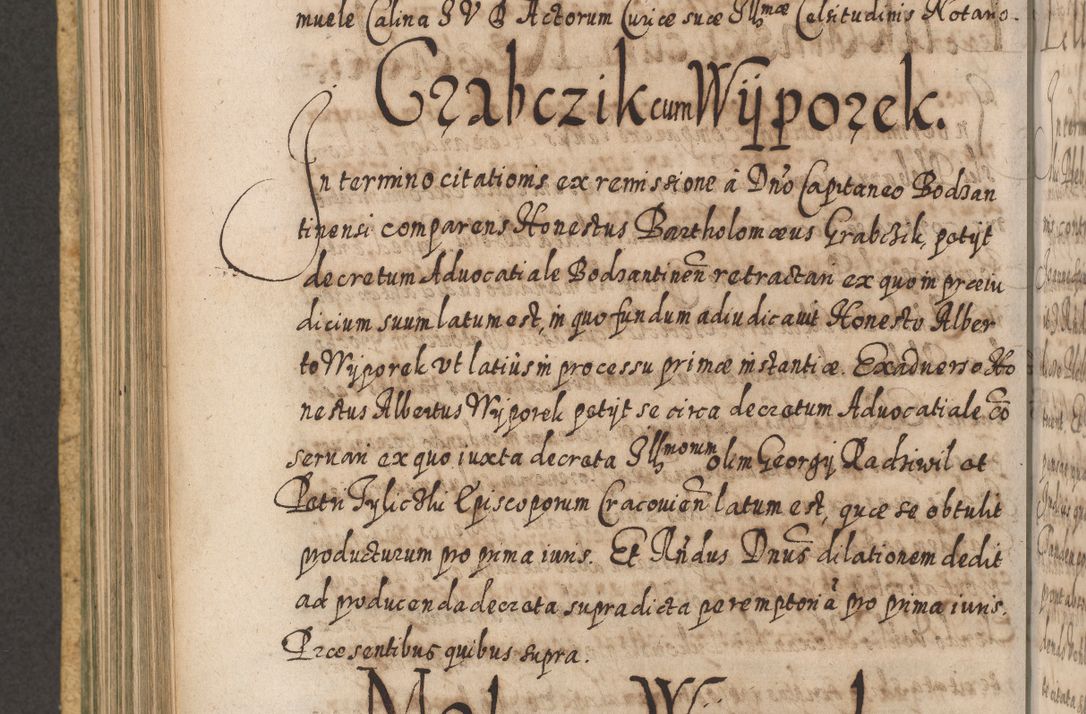 muele Calina I V D Actorum Curiæ suæ Illmæ Celsitudinis Notario.
Grabczik cum Wÿporek.
In termino citationis ex remissione à Dno Capitaneo Bodzan
tinensi comparens Honestus Bartholomæus Grabczik, petÿt
decretum Advocatiale Bodzantinen retractari ex quo in præiu
dicium suum latum est, in quo fundum adiudicavit Honesto Alber
to Wÿporek vt latiùs in processu primæ instantiæ. Exaduerso Ho
nestus Albertus Wÿporek petÿt se circa decretum Advocatiale cō
seruari ex quo iuxta decreta Illmorum olim Georgÿ Radziwil et
Petri Tylicki Episcoporum Cracovien latum est, quæ se obtulit
producturum pro prima iuris. Et Rndus Dnus dilationem dedit
ad producenda decreta supradicta peremptoriā pro prima iuris.
Præsentibus quibus supra.